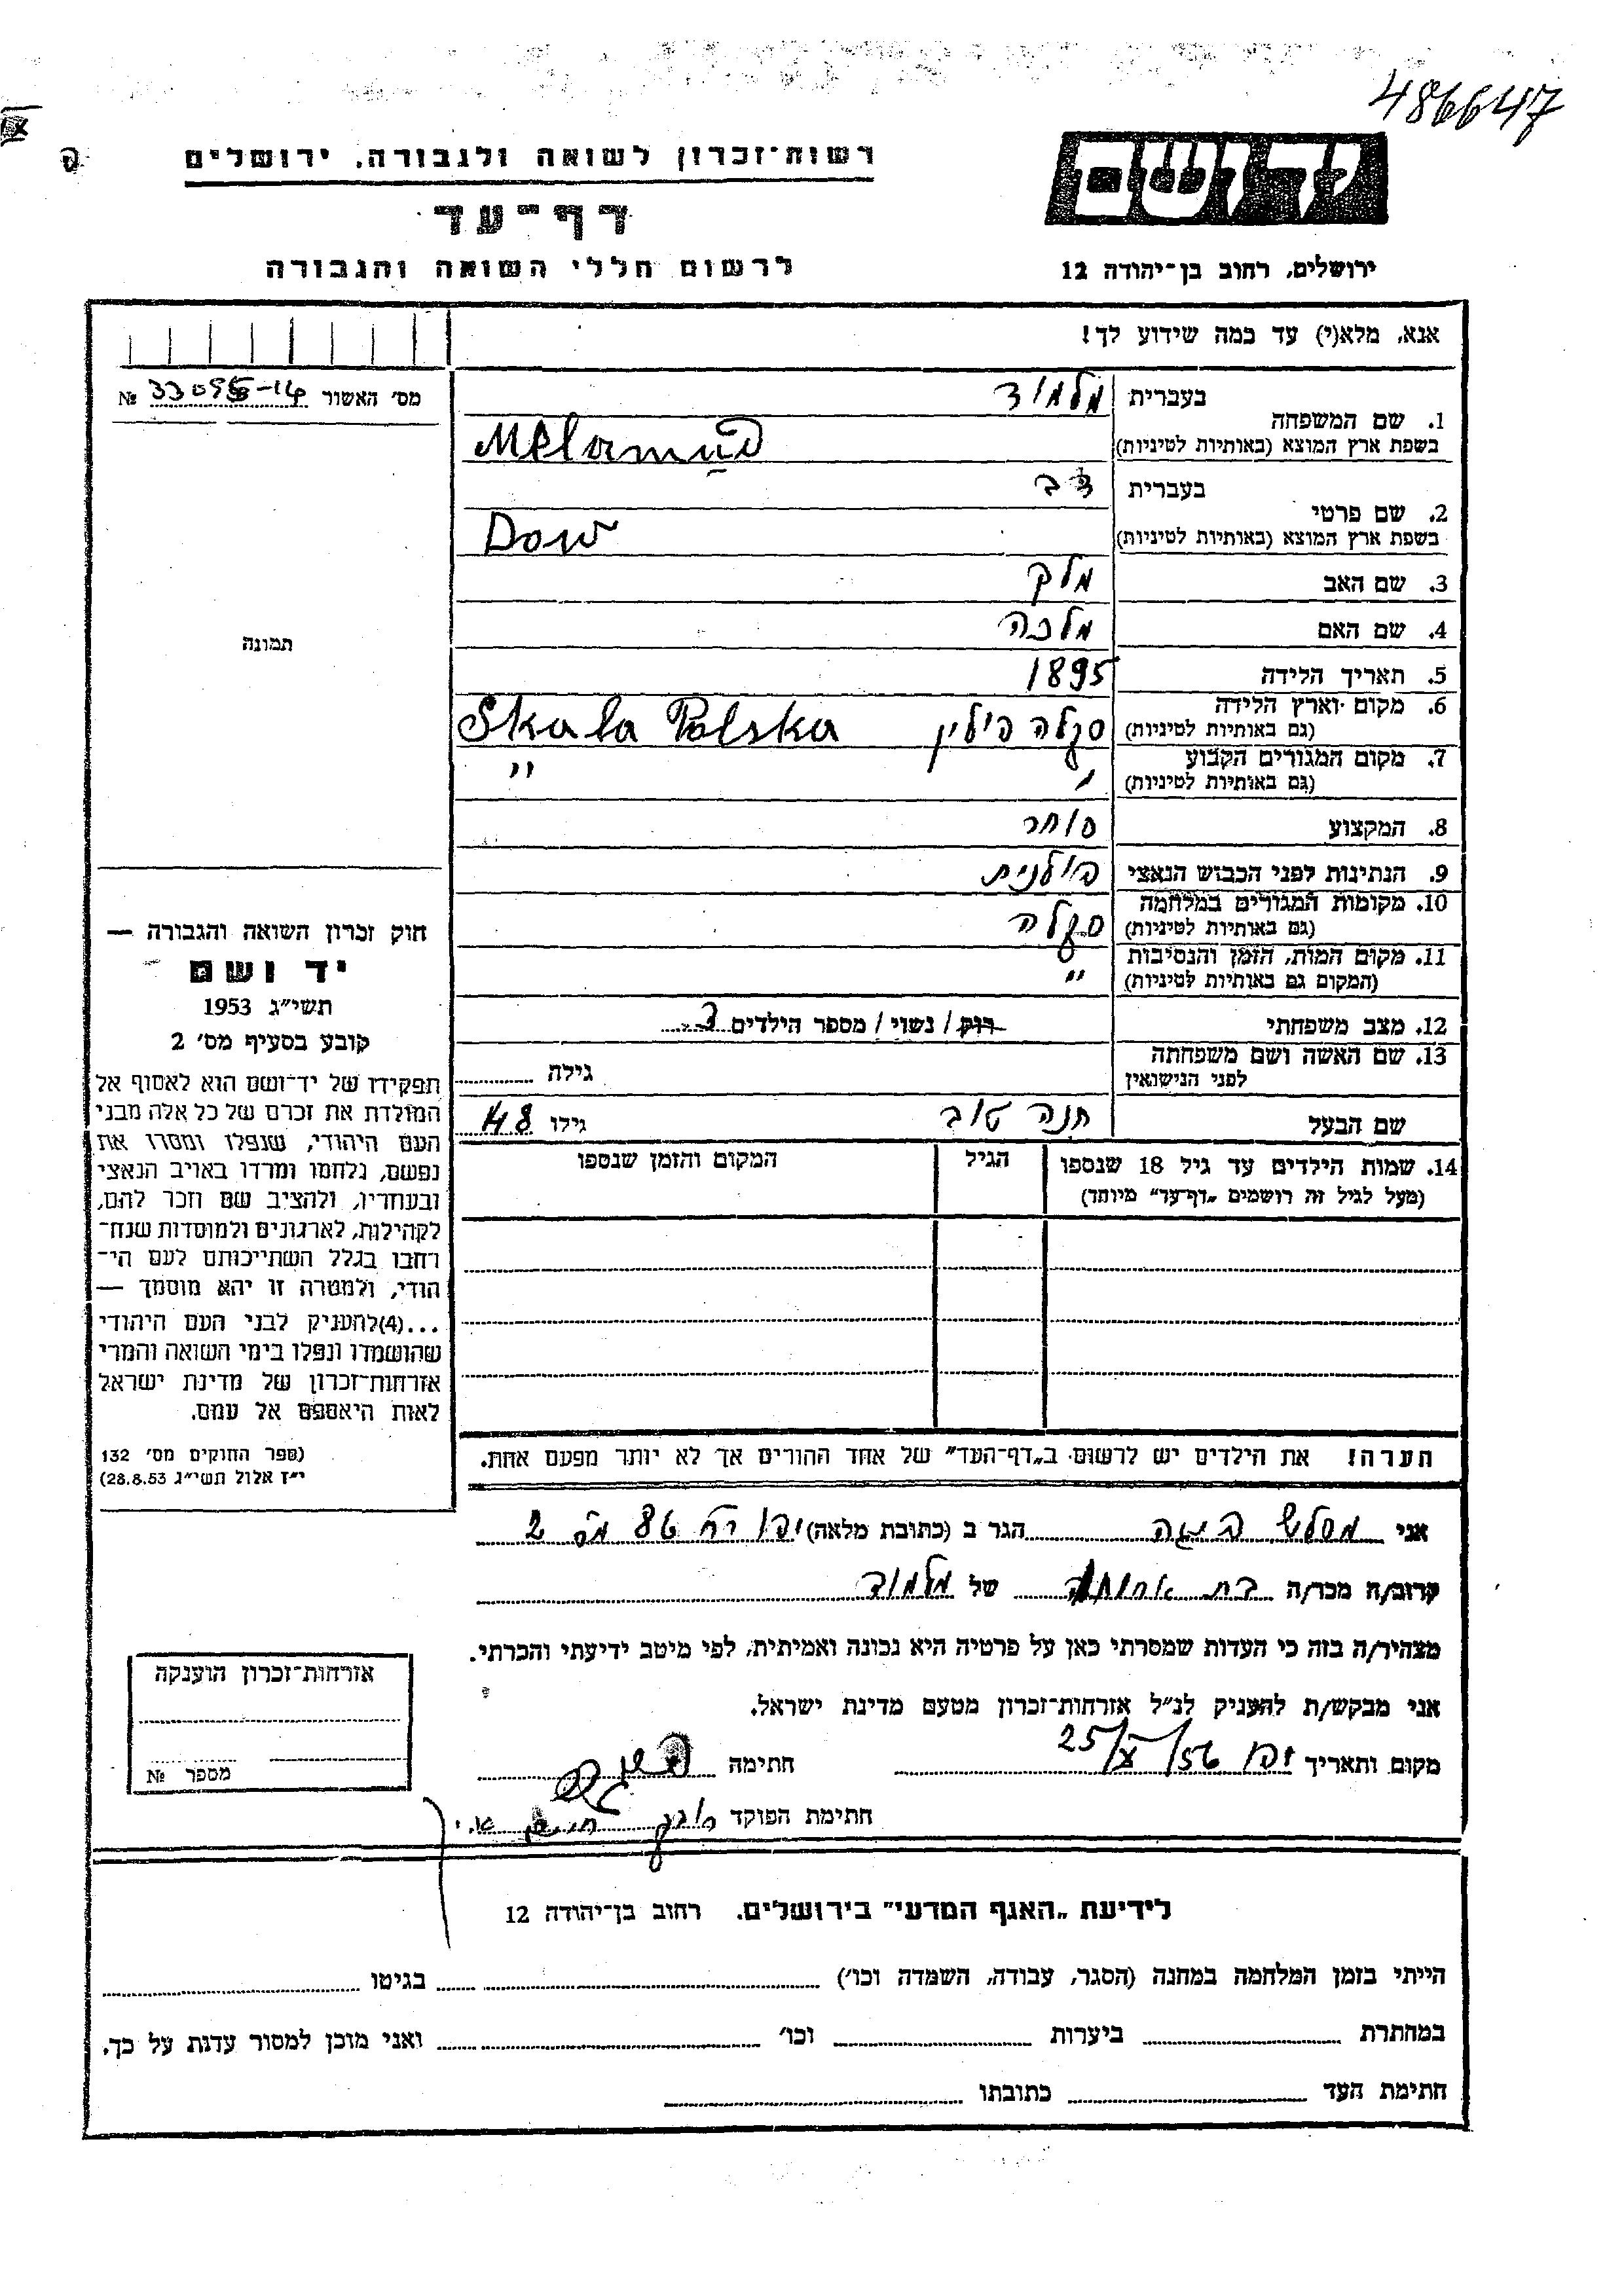 486647
רשות-זכרון לשואה ולגבורה, ירושלים
דף-עד
לרשום חללי השואה והגבורה
יד ושם
ירושלים, רחוב בן-יהודה 12
אנא, מלא(י) עד כמה שידוע לך!
מס׳ האשור №
1. שם המשפחה בעברית מלמוד
בשפת ארץ המוצא (באותיות לטיניות) Melamud
2. שם פרטי בעברית דב
בשפת ארץ המוצא (באותיות לטיניות) Dow
3. שם האב מלך
4. שם האם מלכה
5. תאריך הלידה 1895
6. מקום וארץ הלידה (גם באותיות לטיניות) סקלה פולין Skala Polska
7. מקום המגורים הקבוע (גם באותיות לטיניות) " "
8. המקצוע סוחר
9. הנתינות לפני הכבוש הנאצי פולנית
10. מקומות המגורים במלחמה (גם באותיות לטיניות) סקלה
11. מקום המות, הזמן והנסיבות (המקום גם באותיות לטיניות) "
12. מצב משפחתי רוק / נשוי / מספר הילדים 3
13. שם האשה ושם משפחתה לפני הנישואין גילה
שם הבעל חנה טוב גילו 48
14. שמות הילדים עד גיל 18 שנספו הגיל המקום והזמן שנספו
(מעל לגיל זה רושמים „דף-עד" מיוחד)
הערה! את הילדים יש לרשום ב„דף-העד" של אחד ההורים אך לא יותר מפעם אחת.
תמונה
חוק זכרון השואה והגבורה —
יד ושם
תשי"ג 1953
קובע בסעיף מס׳ 2
תפקידו של יד-ושם הוא לאסוף אל
המולדת את זכרם של כל אלה מבני
העם היהודי, שנפלו ומסרו את
נפשם, נלחמו ומרדו באויב הנאצי
ובעוזריו, ולהציב שם וזכר להם,
לקהילות, לארגונים ולמוסדות שנח-
רבו בגלל השתייכותם לעם הי-
הודי, ולמטרה זו יהא מוסמך —
...(4)להעניק לבני העם היהודי
שהושמדו ונפלו בימי השואה והמרי
אזרחות-זכרון של מדינת ישראל
לאות היאספם אל עמם.
(ספר החוקים מס׳ 132
י"ז אלול תשי"ג 28.8.53)
אני הגר ב (כתובת מלאה) יפו 2
קרוב/ה מכר/ה בת אחות של מלמוד
מצהיר/ה בזה כי העדות שמסרתי כאן על פרטיה היא נכונה ואמיתית, לפי מיטב ידיעתי והכרתי.
אני מבקש/ת להעניק לנ"ל אזרחות-זכרון מטעם מדינת ישראל.
מקום ותאריך יפו 25/X/56 חתימה
חתימת הפוקד
אזרחות-זכרון הוענקה
מספר №
לידיעת „האגף המדעי" בירושלים. רחוב בן-יהודה 12
הייתי בזמן המלחמה במחנה (הסגר, עבודה, השמדה וכו׳) בגיטו
במחתרת ביערות וכו׳ ואני מוכן למסור עדות על כך.
חתימת העד כתובתו